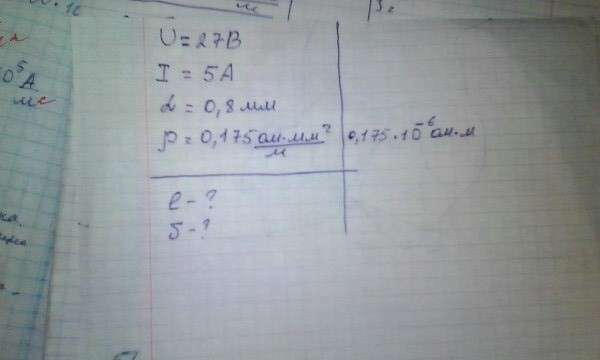 U = 27В
I = 5А
d = 0,8 мм
ρ = 0,175 ом·мм²/м 0,175·10⁻⁶ ом·м
l - ?
S - ?